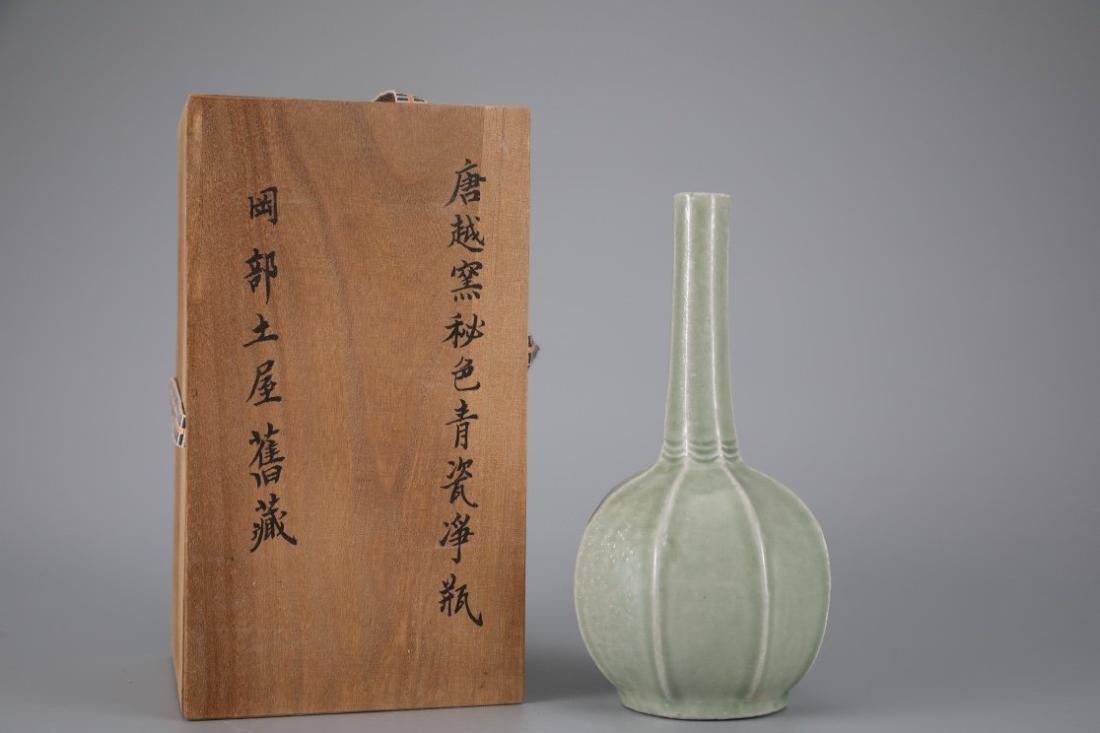 唐越窯秘色青瓷凈瓶
岡部土屋舊藏